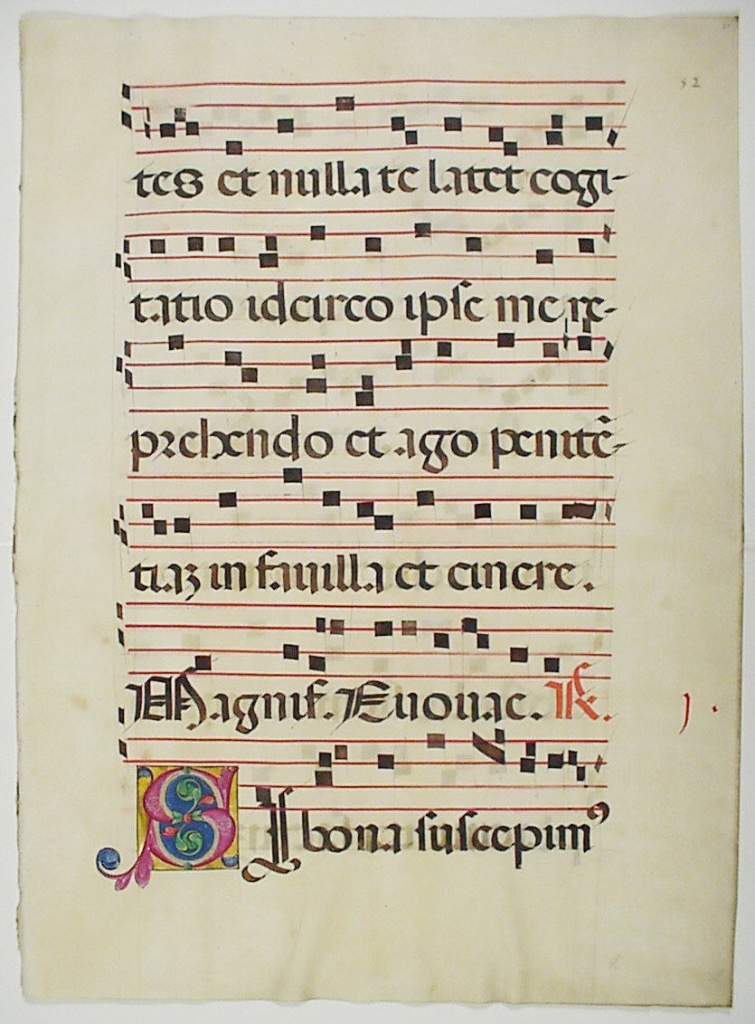 52
tes et nulla te latet cogi-
tatio idcirco ipse me re-
prehendo et ago penitē-
tiaȝ in fauilla et cinere.
Magnif. Euouae. R.
j.
SI bona suscepimꝰ